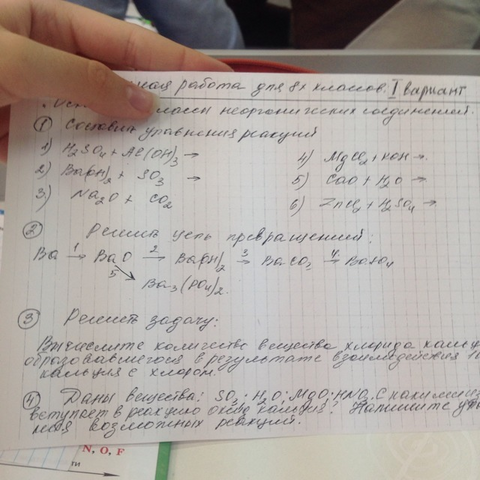 работа для 8х классов. I вариант
неорганических соединений.
① Составить уравнения реакций
1) H2SO4 + Al(OH)3 →
2) Ba(OH)2 + SO3 →
3) Na2O + CO2
4) MgCl2 + KOH →
5) CaO + H2O →
6) ZnCl2 + H2SO4 →
② Решить цепь превращений:
Ba 1→ BaO 2→ Ba(OH)2 3→ BaCO3 4→ BaSO4
5↘ Ba3(PO4)2.
③ Решить задачу:
Вычислите количество вещества хлорида
образовавшегося в результате взаимодействия
кальция с хлором.
④ Даны вещества: SO3; H2O; MgO; HNO3. С какими из
вступает в реакцию оксид кальция? Напишите
возможных реакций.
N, O, F
ти